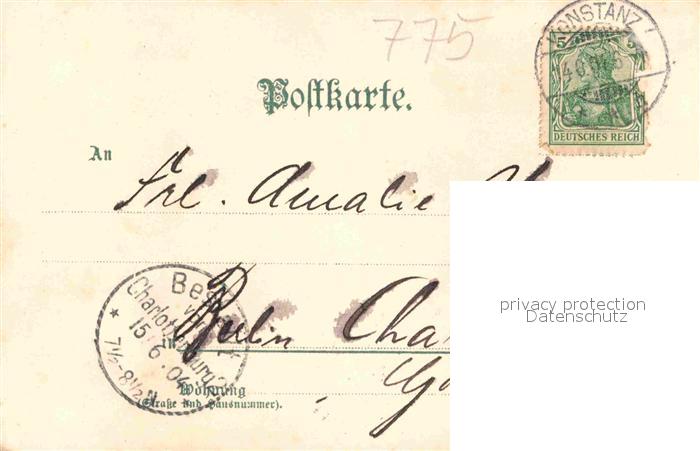 775
KONSTANZ
5
DEUTSCHES REICH
Postkarte.
An
Frl. Amalie
privacy protection
Datenschutz
Best
Charlottenburg
15.6.04
7½-8½
in Berlin Cha
Wohnung
(Straße und Hausnummer).